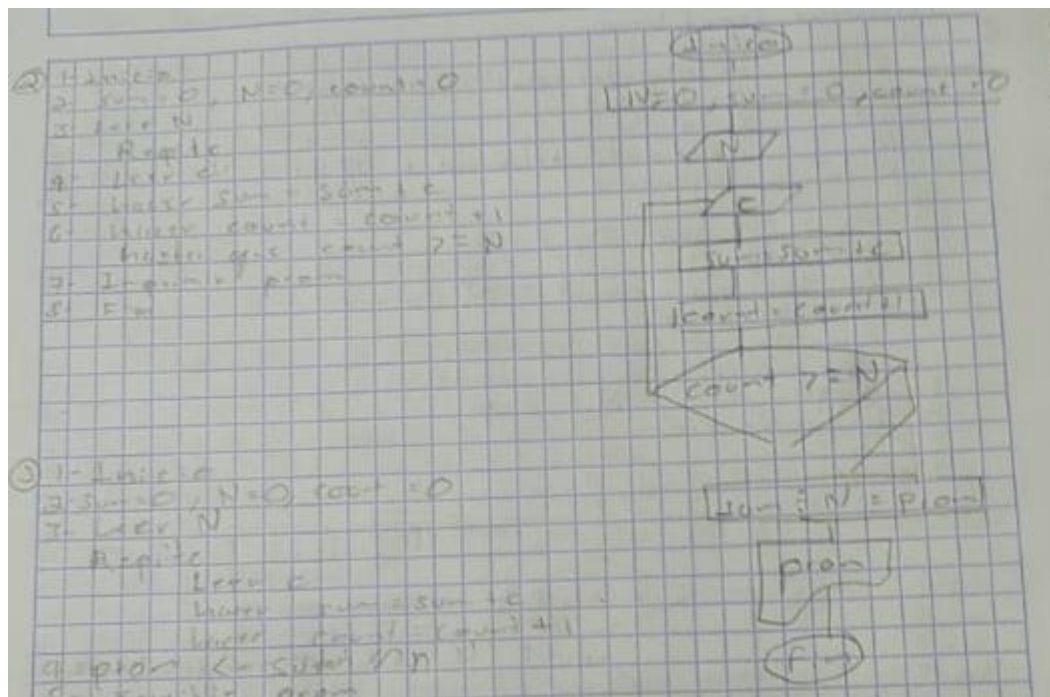 ② 1- Inicio
2- sum=0, N=0, count=0
3- Leer N
Repite
4- Leer c
5- hacer sum = sum + c
6- hacer count = count + 1
hasta que count >= N
7- Imprimir prom
8- Fin
③ 1- Inicio
2- sum=0, N=0, count=0
3- Leer N
Repite
Leer c
hacer sum = sum + c
hacer count = count + 1
prom <-
prom
Inicio
N=0, sum=0, count=0
N
c
sum=sum+c
count=count+1
count >= N
sum ÷ N = prom
prom
Fin